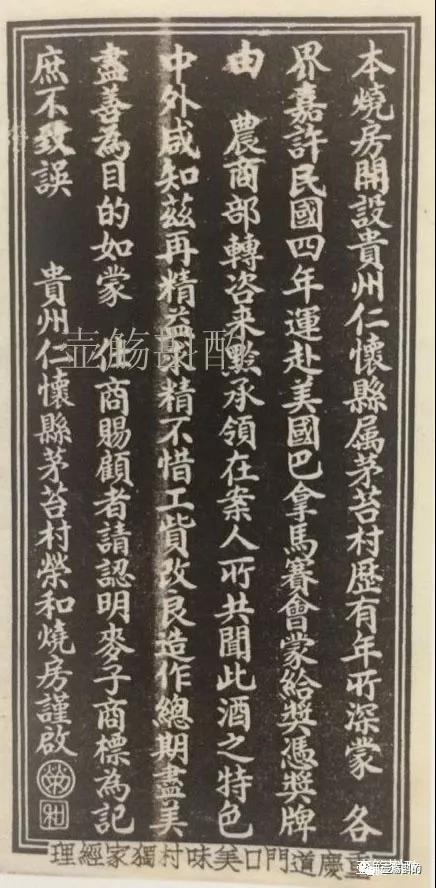 本燒房開設貴州仁懷縣属茅苔村歷有年所深蒙 各
界嘉許民國四年運赴美國巴拿馬賽會蒙給奬憑奬牌
由 農商部轉咨来黔承領在案人所共聞此酒之特色
中外咸知茲再精益求精不惜工貲改良造作總期盡美
盡善為目的如蒙 仕商賜顧者請認明麥子商標為記
庶不致誤 貴州仁懷縣茅苔村榮和燒房謹啟
重慶道門口美味村獨家經理
壺觞説酌